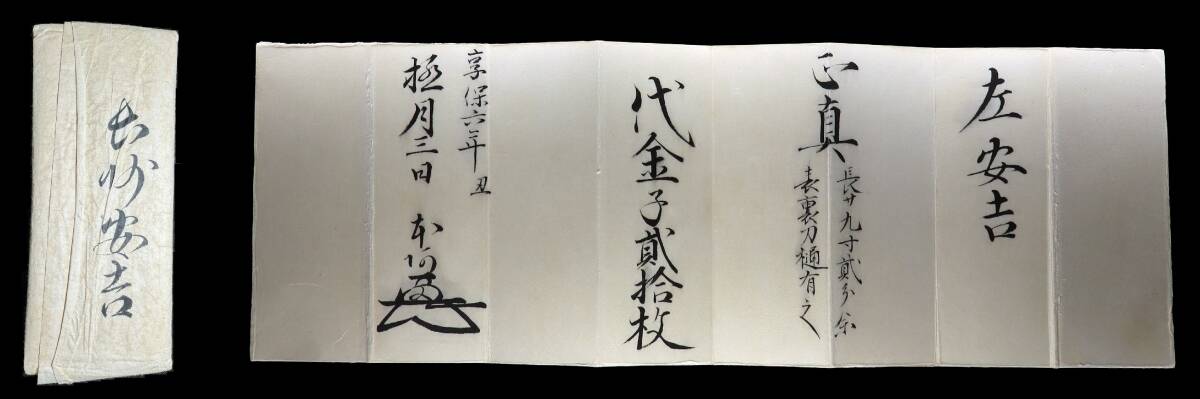 長州安吉
左安吉
正真
長サ九寸貳分余
表裏刀樋有之
代金子貳拾枚
享保六年丑
極月三日 本阿